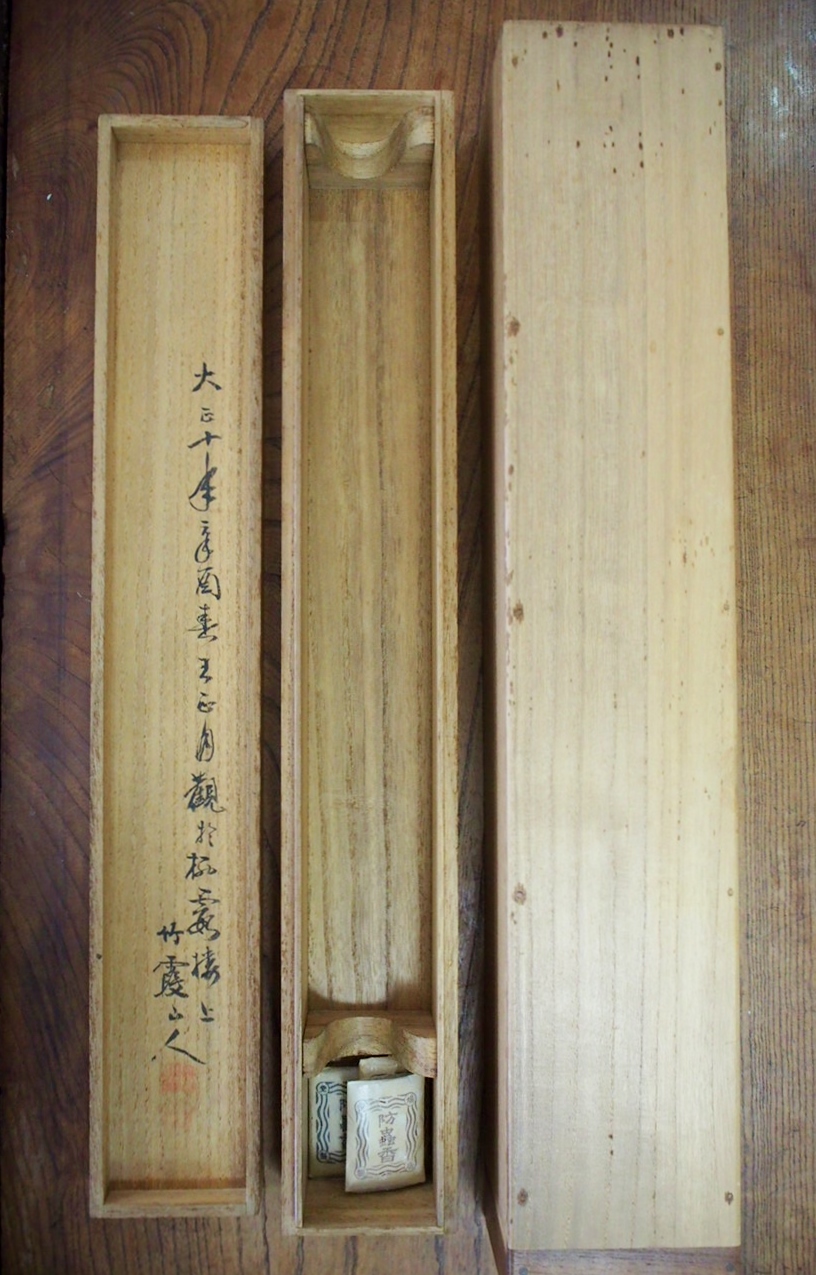 大正十年辛酉春王正月觀於楓霞樓上
竹霞山人
防蟲香